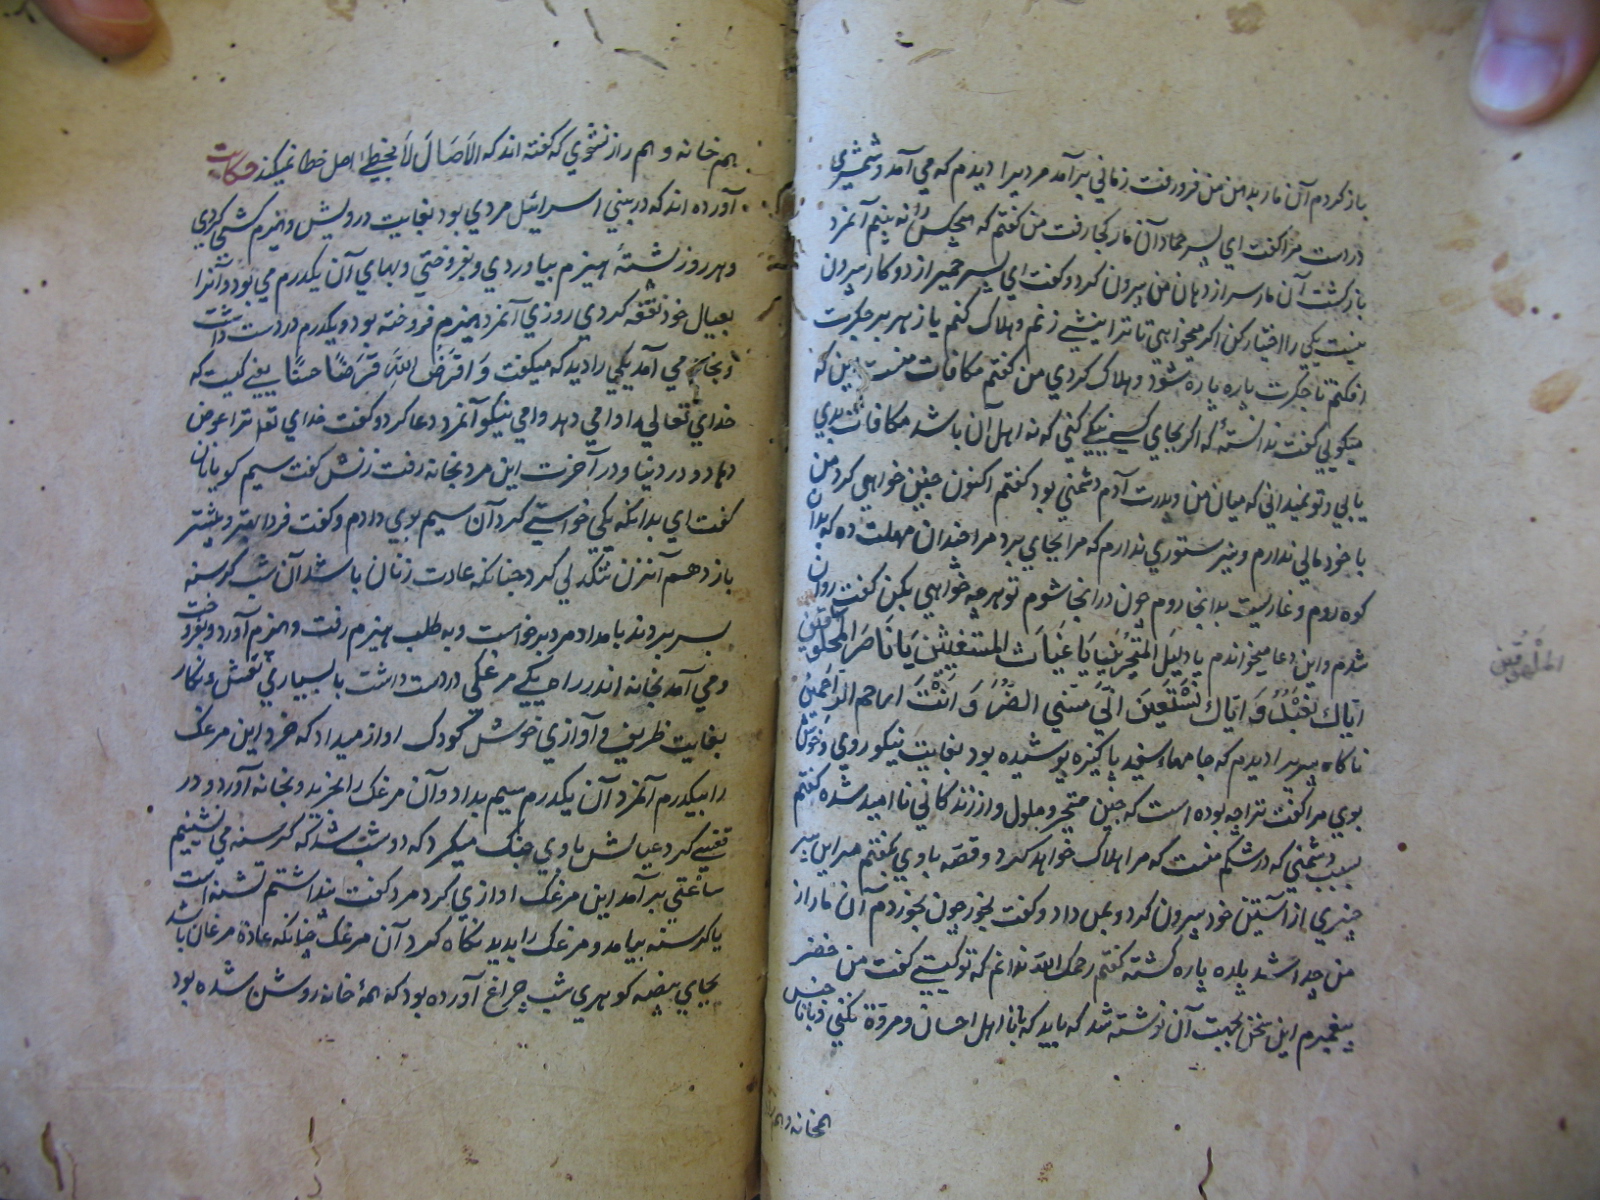 باز کردم آن مار بدهن من فرو رفت زماني برآمد مردیرا دیدم که مي آمد و شمشیری
در دست مرا گفت اي پسر حماد آن مار کجا رفت من گفتم که هیچکس را نه بینم آنمرد
بازگشت آن مار سر از دهان من بیرون کرد و گفت اي پسر حمیر از دو کار بیرون
نیست یکي را اختیار کن اکر میخواهي تا ترا نیشے زنم و هلاک کنم یا زهر بر جکرت
افکنم تا جکرت پاره پاره شود و هلاک کردي من کفتم مکافات منست این که
میکویي کفت ندانستهٔ که اکر بجاي کسے نیکے کني که نه اهل آن باشد مکافات بدي
یابي و تو نمیداني که میان من و پدرت آدم دشمني بود کفتم اکنون چنین خواهي کرد من
با خود مالي ندارم و نیز ستوري ندارم که مرا بجاي برد مرا چندان مهلت ده که بدان
کوه روم و غاریست بدانجا روم چون در انجا شوم تو هر چه خواهي بکن کفت روان
شدم و این دعا میخواندم یا دلیل المتحیرین یا غیاث المستغیثین یا ناصر المخلوقین
ایاك نعبد و ایاك نستعین اني مسني الضر و انت ارحم الراحمین
ناکاه پیریرا دیدم که جامهاء سفید پاکیزه پوشیده بود بغایت نیکو روي و خوش
بوي مرا کفت ترا چه بوده است که چنین متحیر و ملول و از زندکاني نا امید شده کفتم
بسبب دشمني که در شکم منست که مرا هلاك خواهد کرد و قصه با وي بکفتم مر این پیر
چیزي از آستین خود بیرون کرد و بمن داد و کفت بخور چون بخوردم آن مار از
من جدا شد پاره پاره کشته کفتم رحمك الله ندانم که تو کیستے کفت من خضر
پیغمبرم این سخن بجهت آن نوشته شد که باید که با نا اهل احسان و مروة نکني و با نا جنس
همخانه و هم
المخلوقین
هم خانه و هم راز نشوي که کفته اند که الاصال لا یخطي اصل خطا نمیکند حکایت
آورده اند که در بني اسرائیل مردي بود بغایت درویش و هیزم کشي کردي
و هر روز پشتهٔ هیزم بیاوردي و بفروختي و بهاي آن یکدرم مي بود و آنرا
بعیال خود نفقه کردي روزي آنمرد هیزم فروخته بود و یکدرم در دست داشت
و بخانه مي آمد یکي را دید که میکفت و اقرض الله قرضا حسنا یعنے کیست که
خداي تعالي را وامي دهد وامي نیکو آنمرد دعا کرد و کفت خداي تعا ترا عوض
دهاد و در دنیا و در آخرت این مرد بخانه رفت زنش کفت سیم کو یا نان
کفت اي بدانکه یکي خواستے کرد آن سیم بوي دادم و کفت فردا بهتر و بیشتر
باز دهم آنزن تنکدلي کرد چنانکه عادت زنان باشد آن شب کرسنه
بسر بردند بامداد مرد برخواست و به طلب هیزم رفت و هیزم آورد و بفروخت
و مي آمد بخانه اندر راه یکے مرغکي در دست داشت با بسیاري نقش و نکار
بغایت ظریف و آوازي خوش کودك اواز میداد که خرد این مرغك
را بیکدرم آنمرد آن یکدرم سیم بداد و آن مرغك را بخرید و بخانه آورد و در
قفسے کرد عیالش با وي جنك میکرد که دو شب شد که کرسنه مي نشینیم
ساعتي برآمد این مرغك اوازي کرد مرد کفت پنداشتم تشنه است
یا کرسنه بیامد و مرغك را بدید نکاه کرد آن مرغك چنانکه عادة مرغان باشد
بجاي بیضه کوهري شب چراغ آورده بود که همهٔ خانه روشن شده بود